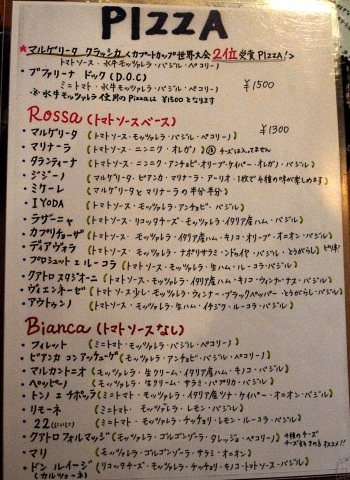 PIZZA
*マルゲリータ クラッシカ <カプートカップ世界大会 2位 受賞 PIZZA!>
トマトソース・水牛モッツァレラ・バジル・ペコリーノ
・ブファリーナ ドック (D.O.C) ¥1500
ミニトマト・水牛モッツァレラ・バジル・ペコリーノ
※水牛モッツァレラ使用のPizzaは ¥1500 となります
Rossa (トマトソースベース)
・マルゲリータ (トマトソース・モッツァレラ・バジル・ペコリーノ) ¥1300
・マリナーラ (トマトソース・ニンニク・オレガノ) チーズは入ってません
・タランティーナ (トマトソース・ニンニク・アンチョビ・オリーブ・ケイパー・オレガノ・バジル)
・ジジーノ (マルゲリータ・ビアンカ・マリナーラ・アーリオ・1枚で4種の味が楽しめます)
・ミケーレ (マルゲリータとマリナーラの半分半分)
・IYODA (トマトソース・モッツァレラ・アンチョビ・バジル)
・ラザーニャ (トマトソース・リコッタチーズ・モッツァレラ・イタリア産ハム・バジル)
・カプリチョーザ (トマトソース・モッツァレラ・イタリア産ハム・キノコ・オリーブ・オニオン・バジル)
・ディアヴォラ (トマトソース・モッツァレラ・ナポリサラミ・ンドゥイヤ・バジル・とうがらし) ピリ辛!
・プロシュット エ ルーコラ (トマトソース・モッツァレラ・生ハム・ルーコラ・バジル)
・クアトロ スタジオーニ (トマトソース・モッツァレラ・イタリア産ハム・キノコ・ウィンナー・ナス・バジル)
・ヴィエンネーゼ (トマトソース少し・モッツァレラ・ウィンナー・ブラックペッパー・とうがらし・バジル)
・アウトゥンノ (トマトソース・モッツァレラ・生ハム・イチジク・ルーコラ・バジル)
Bianca (トマトソースなし)
・フィレット (ミニトマト・モッツァレラ・バジル・ペコリーノ)
・ビアンカ コン アッチューゲ (モッツァレラ・アンチョビ・バジル・ペコリーノ)
・マルカントニオ (モッツァレラ・生クリーム・イタリア産ハム・キノコ・バジル)
・ペッピーノ (モッツァレラ・生クリーム・サラミ・パプリカ・バジル)
・トンノ エ チポッラ (ミニトマト・モッツァレラ・イタリア産ツナ・ケイパー・オニオン・バジル)
・リモーネ (ミニトマト・モッツァレラ・レモン・バジル)
・22 (ミニトマト・モッツァレラ・ケッチョリ・レモン・ルーコラ・バジル)
・クアトロフォルマッジ (モッツァレラ・ゴルゴンゾーラ・タレッジョ・ペコリーノ) 4種のチーズ チーズ好きの方オススメ!!
・マリ (モッツァレラ・ゴルゴンゾーラ・サラミ・オニオン)
・ドン ルイージ (リコッタチーズ・モッツァレラ・ケッチョリ・キノコ・トマトソース・バジル)
(カルツォーネ)